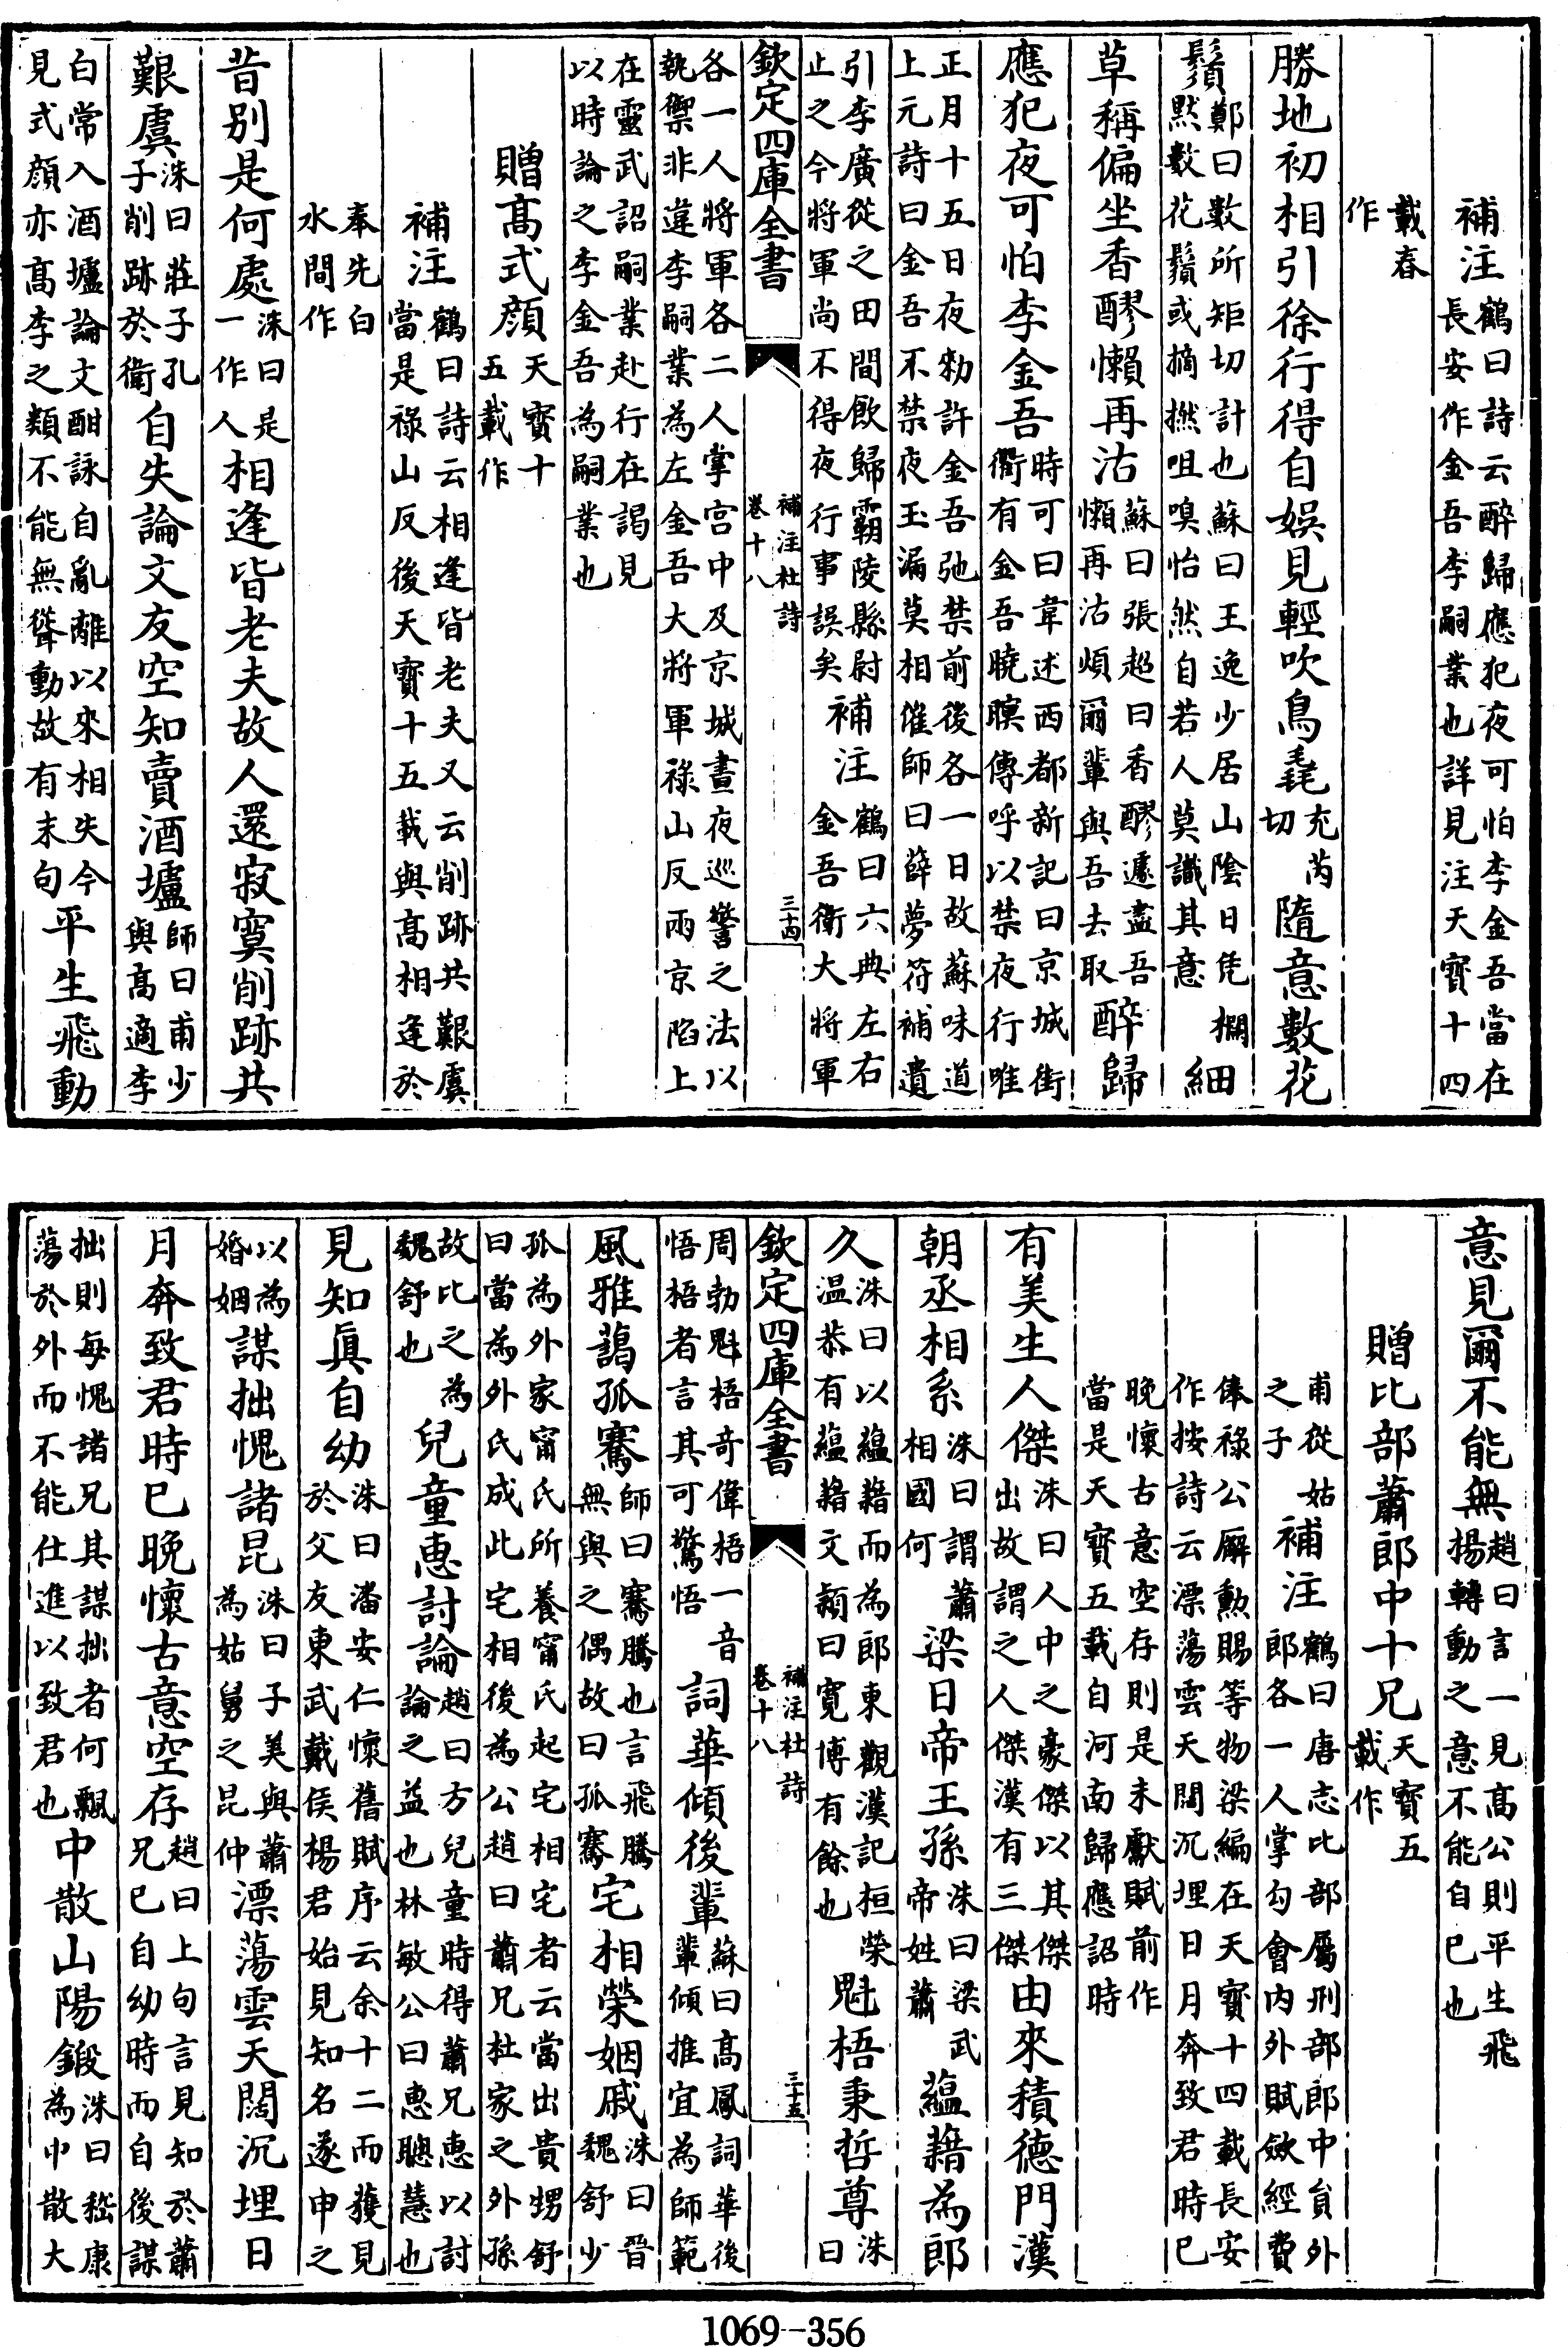 補注鶴曰詩云醉歸應犯夜可怕李金吾當在
長安作金吾李嗣業也詳見注天寶十四
載春
作
勝地初相引徐行得自娛見輕吹鳥毳充芮
切隨意數花
鬚鄭曰數所矩切計也蘇曰王逸少居山陰日凭欄
默數花鬚或摘撚咀嗅怡然自若人莫識其意細
草稱偏坐香醪懶再沽蘇曰張超曰香醪遽盡吾
懶再沽煩爾輩與吾去取醉歸
應犯夜可怕李金吾時可曰韋述西都新記曰京城街
衢有金吾曉暝傳呼以禁夜行唯
正月十五日夜勑許金吾弛禁前後各一日故蘇味道
上元詩曰金吾不禁夜玉漏莫相催師曰薛夢符補遺
引李廣從之田間飲歸霸陵縣尉
止之今將軍尚不得夜行事誤矣補注鶴曰六典左右
金吾衛大將軍
欽定四庫全書
補注杜詩
卷十八
三十四
各一人將軍各二人掌宫中及京城晝夜巡警之法以
執禦非違李嗣業為左金吾大將軍祿山反兩京陷上
在靈武詔嗣業赴行在謁見
以時論之李金吾為嗣業也
贈髙式顔天寶十
五載作
補注鶴曰詩云相逢皆老夫又云削跡共艱虞
當是祿山反後天寶十五載與髙相逢於
奉先白
水間作
昔别是何處洙曰是
一作人相逢皆老夫故人還寂寞削跡共
艱虞洙曰莊子孔
子削跡於衛自失論文友空知賣酒壚師曰甫少
與髙適李
白常入酒壚論文酣詠自亂離以來相失今
見式顔亦髙李之類不能無聳動故有末句平生飛動
意見爾不能無趙曰言一見髙公則平生飛
揚轉動之意不能自已也
贈比部蕭郎中十兄天寶五
載作
甫從姑
之子補注鶴曰唐志比部屬刑部郎中貟外
郎各一人掌勾會内外賦斂經費
俸祿公廨勲賜等物梁編在天寶十四載長安
作按詩云漂蕩雲天闊沉埋日月奔致君時已
晚懷古意空存則是未獻賦前作
當是天寶五載自河南歸應詔時
有美生人傑洙曰人中之豪傑以其傑
出故謂之人傑漢有三傑由來積德門漢
朝丞相系洙曰謂蕭
相國何梁日帝王孫洙曰梁武
帝姓蕭藴藉為郎
久洙曰以藴藉而為郎東觀漢記桓榮
温恭有藴藉文頴曰寛博有餘也魁梧秉哲尊洙
曰
欽定四庫全書
補注杜詩
卷十八
三十五
周勃魁梧奇偉梧一音
悟梧者言其可驚悟詞華傾後輩蘇曰髙鳳詞華後
輩傾推宜為師範
風雅藹孤騫師曰騫騰也言飛騰
無與之偶故曰孤騫宅相榮姻戚洙曰晉
魏舒少
孤為外家甯氏所養甯氏起宅相宅者云當出貴甥舒
曰當為外氏成此宅相後為公趙曰蕭兄杜家之外孫
故比之為
魏舒也兒童惠討論趙曰方兒童時得蕭兄惠以討
論之益也林敏公曰惠聰慧也
見知真自幼洙曰潘安仁懷舊賦序云余十二而獲見
於父友東武戴侯楊君始見知名遂申之
以為
婚姻謀拙愧諸昆洙曰子美與蕭
為姑舅之昆仲漂蕩雲天闊沉埋日
月奔致君時已晚懷古意空存趙曰上句言見知於蕭
兄已自幼時而自後謀
拙則每愧諸兄其謀拙者何飄
蕩於外而不能仕進以致君也中散山陽鍛洙曰嵇康
為中散大
1069-356